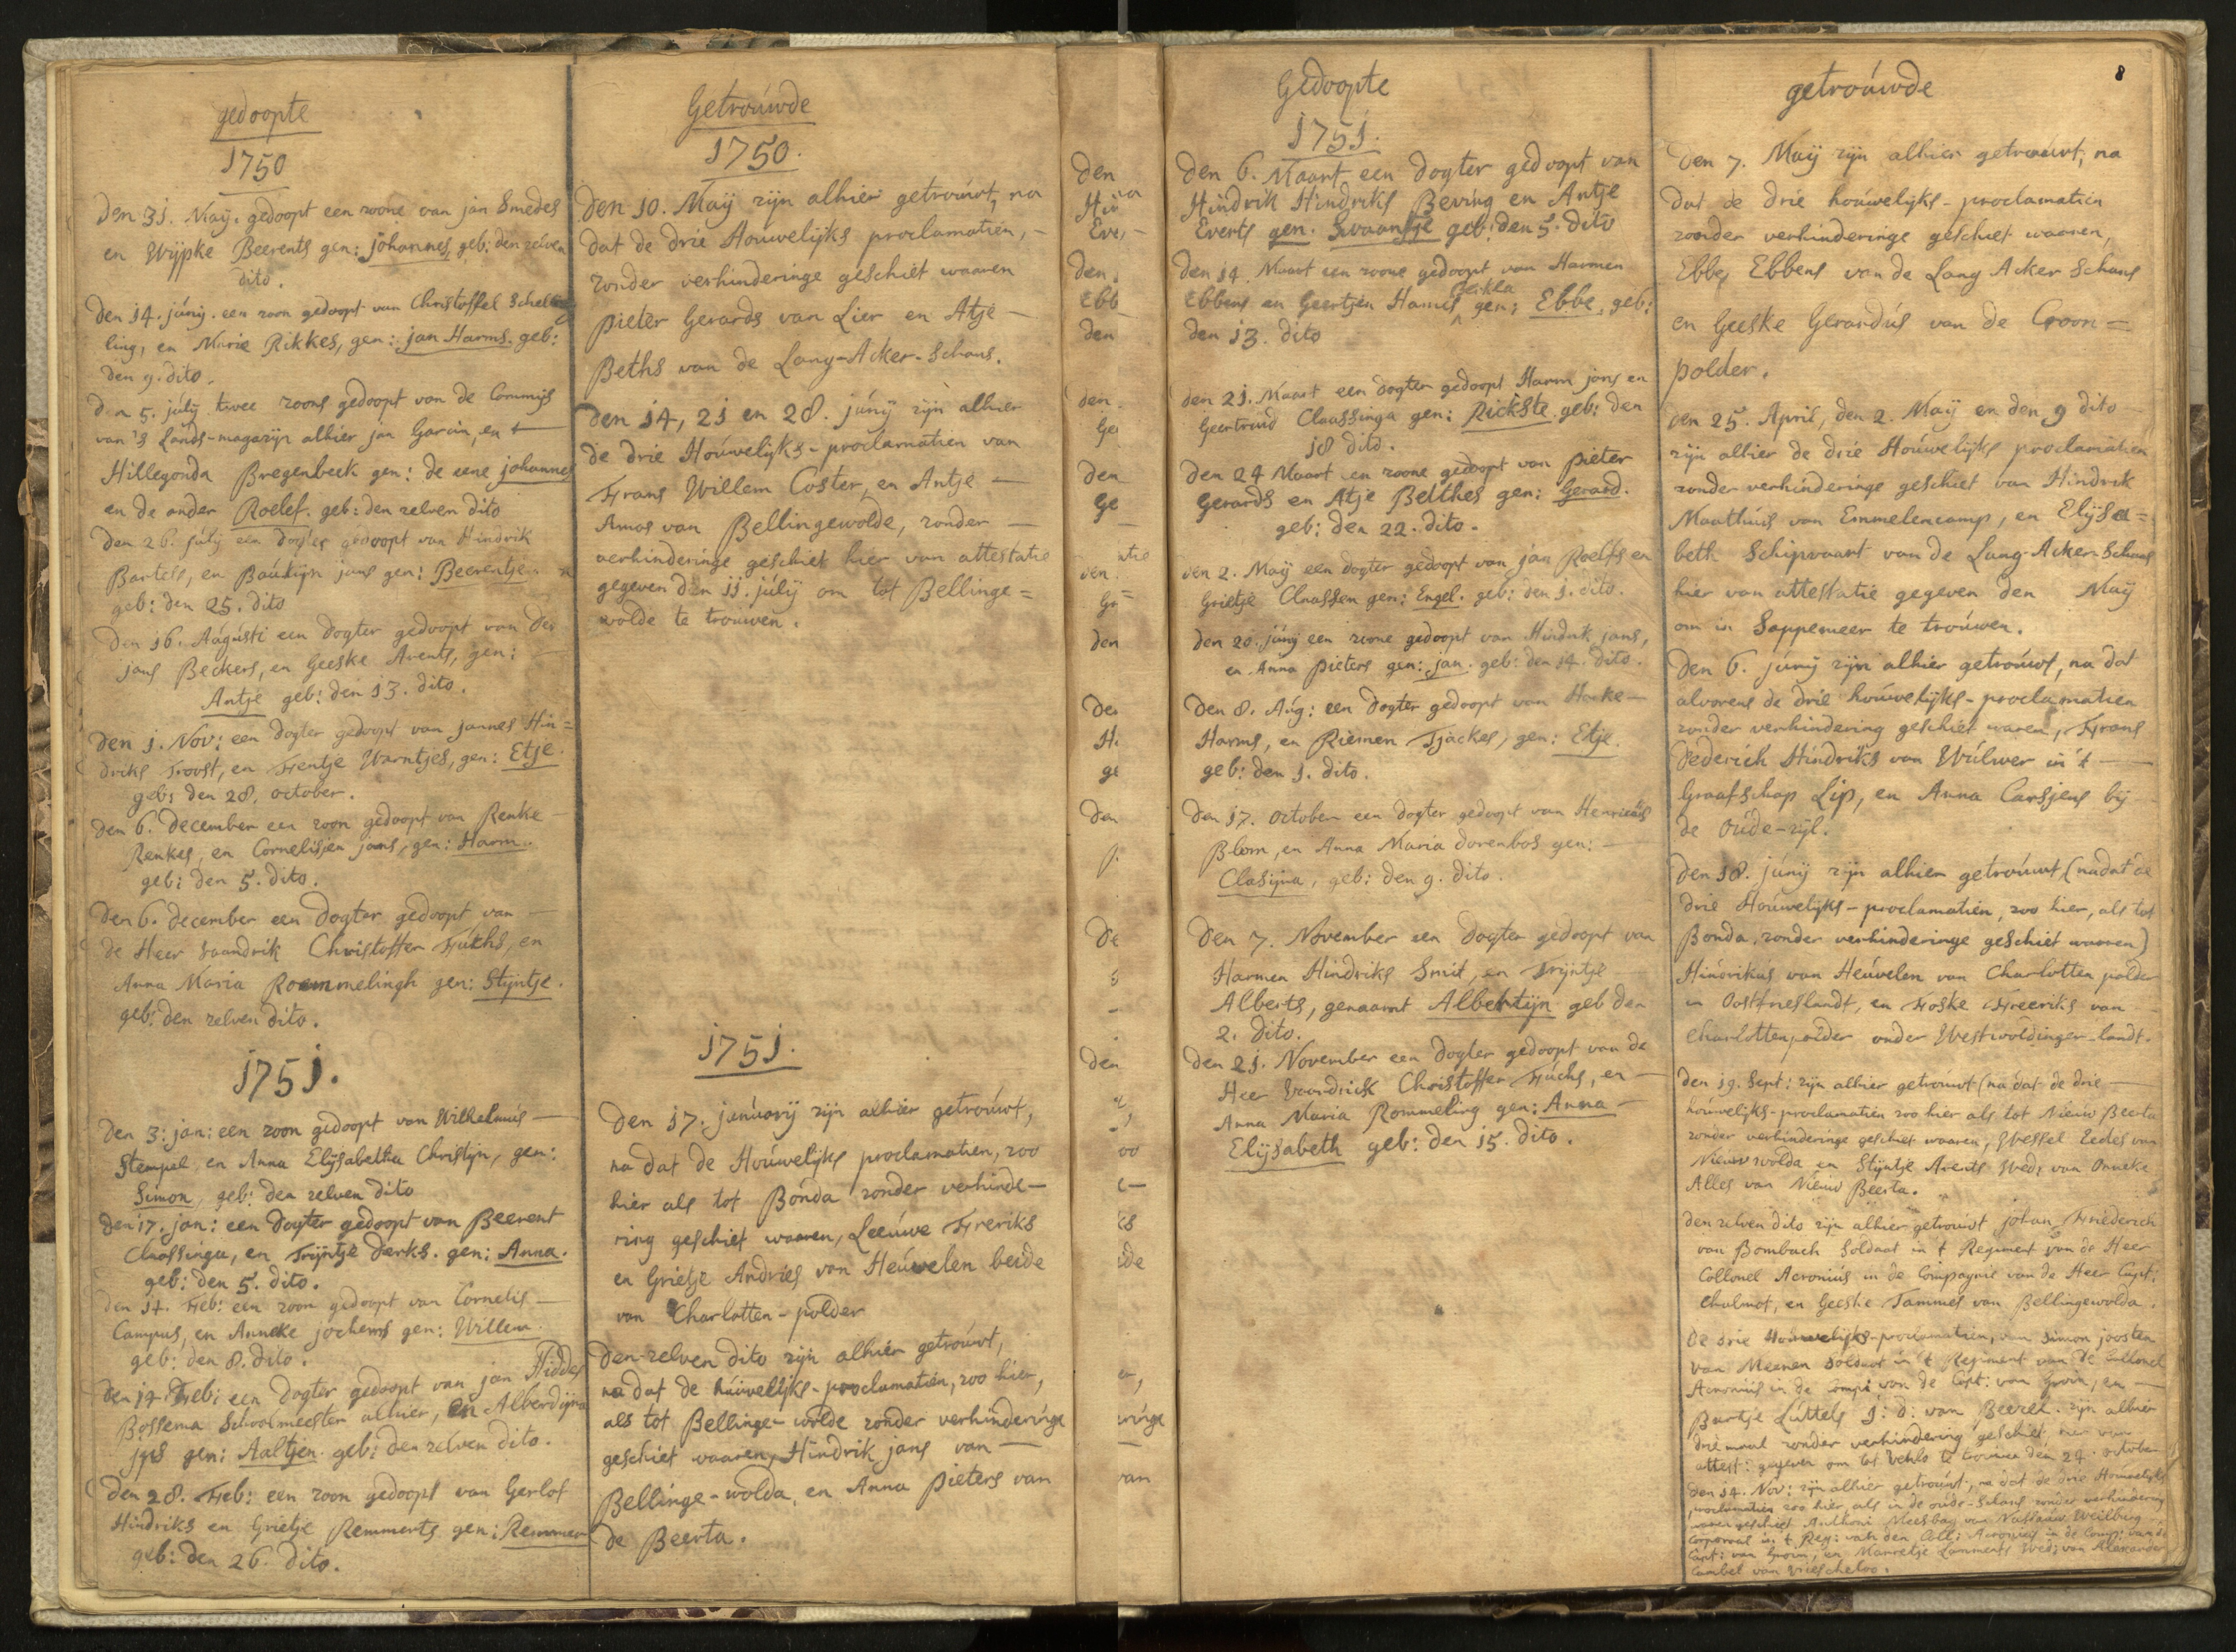 gedoopte
1750
den 31. Maij. gedoopt een zoone van jan Smedes
en Wijpke Beerents gen: johannes, geb: den zelven
dito.
den 14. júnij. een zoon gedoopt van Christoffel Schel
ling, en Marie Rikkes, gen: jan Harms. geb:
den 9. dito.
den 5. júlij twee zoons gedoopt van de Commijs
van 's Lands-magazijn alhier jan Garcin, en
Hillegonda Bregenbeek gen: de eene johannes
en de ander Roelef. geb: den zelven dito
den 26. júlij een dogter gedoopt van Hindrik
Bartels, en Baukijn jans gen: Beerentje
geb: den 25. dito
den 16. Augústi een dogter gedoopt van
jans Beckers, en Geeske Arents, gen:
Antje geb: den 13. dito.
den 1. Nov: een dogter gedoopt van jannes Hin=
driks Troost, en Fentje Warntjes, gen: Etje.
geb: den 28. october.
den 6. december een zoon gedoopt van Renke
Renkes, en Cornelisjen jans, gen: Harm.
geb: den 5. dito.
den 6. december een dogter gedoopt van
de Heer vaandrik Christoffer Fúchs, en
Anna Maria Roemmelingh gen: Stijntje.
geb: den zelven dito.
1751.
den 3: jan: een zoon gedoopt van Wilhelmus
Stempel, en Anna Elijsabetha Christijn, gen:
Simon, geb: den zelven dito
den 17. jan: een dogter gedoopt van Beerent
Claassinga, en Trijntje derks. gen: Anna.
geb: den 5. dito.
den 14. Feb: een zoon gedoopt van Cornelis
Campus, en Anneke jochems gen: Willem.
geb: den 8. dito.
den 14 Feb: een dogter gedoopt van jan Fiddes
Bossema Schoolmeester alhier, en Alberdijna
gen: Aaltjen. geb: den zelven dito.
den 28. Feb: een zoon gedoopt van Gerlof
Hindriks en Grietje Remmerts gen: Remmer
geb: den 26. dito.
Getroúwde
1750.
den 10. Maij zijn alhier getroúwt, na
dat de drie Houwelijks proclamatien,
zonder verhinderinge geschiet waaren
Pieter Gerards van Lier en Atje
Beths van de Lang-Acker-Schans.
den 14, 21 en 28. júnij zijn alhier
de drie Hoúwelijks-proclamatien van
Frans Willem Coster, en Antje
Amos van Bellingewolde, zonder
verhinderinge geschiet hier van attestatie
gegeven den 11. júlij om tot Bellinge=
wolde te trouwen.
1751.
den 17. janúarij zijn alhier getroúwt,
na dat de Hoúwelijks proclamatien, zoo
hier als tot Bonda zonder verhinde-
ring geschiet waaren, Leeúwe Freriks
en Grietje Andries van Heúvelen beide
van Charlotten-polder
den-zelven dito zijn alhier getroúwt,
na dat de húiwelijks-proclamatien, zoo hier,
als tot Bellinge-wolde zonder verhinderinge
geschiet waaren, Hindrik jans van
Bellinge-wolda, en Anna Pieters van
de Beerta.
den
Hin
Eve,
den
Ebb
den
den
Ge
den
Ge
den
Gr
den
De
H
ge
Den
De
den
Gedoopte
1751.
den 6. Maart een dogter gedoopt van
Hindrik Hindriks Bevíng en Antje
Everts gen. Swaantje geb: den 5. dito
den 14 Maart een zoone gedoopt van Harmen
Ebbens en Geertjen Hames gen: Ebbe. geb:
den 13. dito
den 21. Maart een dogter gedoopt Harm jans en
Geertruid Claassinga gen: Rickste. geb: den
18 dito.
den 24 Maart en zoone gedoopt van Pieter
Gerards en Atje Bethes gen: Gerard.
geb: den 22. dito.
den 2. Maij een dogter gedoopt van jan Roelfs en
Grietje Claassen gen: Engel. geb: den 1. dito.
den 20. júnij een zoone gedoopt van Hindrik jans,
en Anna Pieters gen: jan. geb: den 14. dito.
den 8. Aúg: een dogter gedoopt van Harke
Harms, en Riemen Tjackes, gen: Etje.
geb: den 1. dito.
den 17. october een dogter gedoopt van Henricús
Blom, en Anna Maria dorenbos gen:
Clasijna, geb: den 9. dito.
den 7. November een dogter gedoopt van
Harmen Hindriks Smit, en Trijntje
Alberts, genaamt Albertijn geb den
2. dito.
den 21. November een dogter gedoopt van de
Heer Vaandrick Christoffer Fúchs, en
Anna Maria Rommeling gen: Anna
Elijsabeth geb: den 15. dito.
getroúwde
8
den 7. Maij zijn alhier getroúwt, na
dat de drie hoúwelijks-proclamatien
zonder verhinderinge geschiet waaren,
Ebbe Ebbens van de Lang Acker Schans
en Geeske Gerardús van de Croon=
polder.
den 25. April, den 2. Maij en den 9 dito
zijn alhier de drie Hoúwelijks proclamatien
zonder verhinderinge geschiet van Hindrik
Maathuis van Emmelencamp, en Elijsa=
beth Schipvaart van de Lang-Acker-Schans
hier van attestatie gegeven den Maij
om in Sappemeer te troúwen.
den 6. júnij zijn alhier getroúwt, na dat
alvorens de drie hoúwelijks-proclamatien
zonder verhindering geschiet waren, Frans
Dederich Hindriks van Wúlwer in 't
Graafschap Lip, en Anna Carsjens bij
de Oúde-zijl.
den 18. júnij zijn alhier getroúwt (nadat de
drie Hoúwelijks-proclamatien, zoo hier, als tot
Bonda, zonder verhinderinge geschiet waaren)
Hinerikus van Heúvelen van Charlotten polder
in Oostfrieslandt, en Foske Freeriks van
Charlottenpolder onder Westwoldinger-landt.
den 19. Sept: zijn alhier getroúwt (na dat de drie
hoúwelijks-proclamatien zoo hier als tot Nieuw Beerta
zonder verhinderinge geschiet waaren, Wessel Eedes van
Nieuwwolda en Stijntje Arents Wed: van Onneke
Alles van Nieuw Beerta.
den zelven dito zijn alhier getroúwt johan Friederich
van Bombach Soldaat in 't Regiment van de Heer
Collonel Acroniús in de Compagnie van de Heer Capt:
Chalmot, en Geeske Tammes van Bellingewolda.
de drie Houwelijks-proclamatien, van Simon joosten
van Meenen Soldaat in 't Regiment van de Collonel
Acroniús in de Comp: van de Capt: van Grovin, en
Bartje Lúttels J: D: van Beezel. zijn alhier
driemaal zonder verhindering geschiet, hier van
attest: gegeven om tot Venlo te trouwen den 24. october
den 14. Nov: zijn alhier getroúwt, na dat de drie Houwelijks
proclamatien zoo hier, als in de oúde-Schans zonder verhindering
waren geschiet Anthoni Meesbag van Nassauw Weilburg
Corporaal in 't Reg: van den Coll: Acronius in de Comp: van de
Capt: van Grovin, en Marretje Lammerts Wed: van Alexander
Cambel van Vriescheloo.